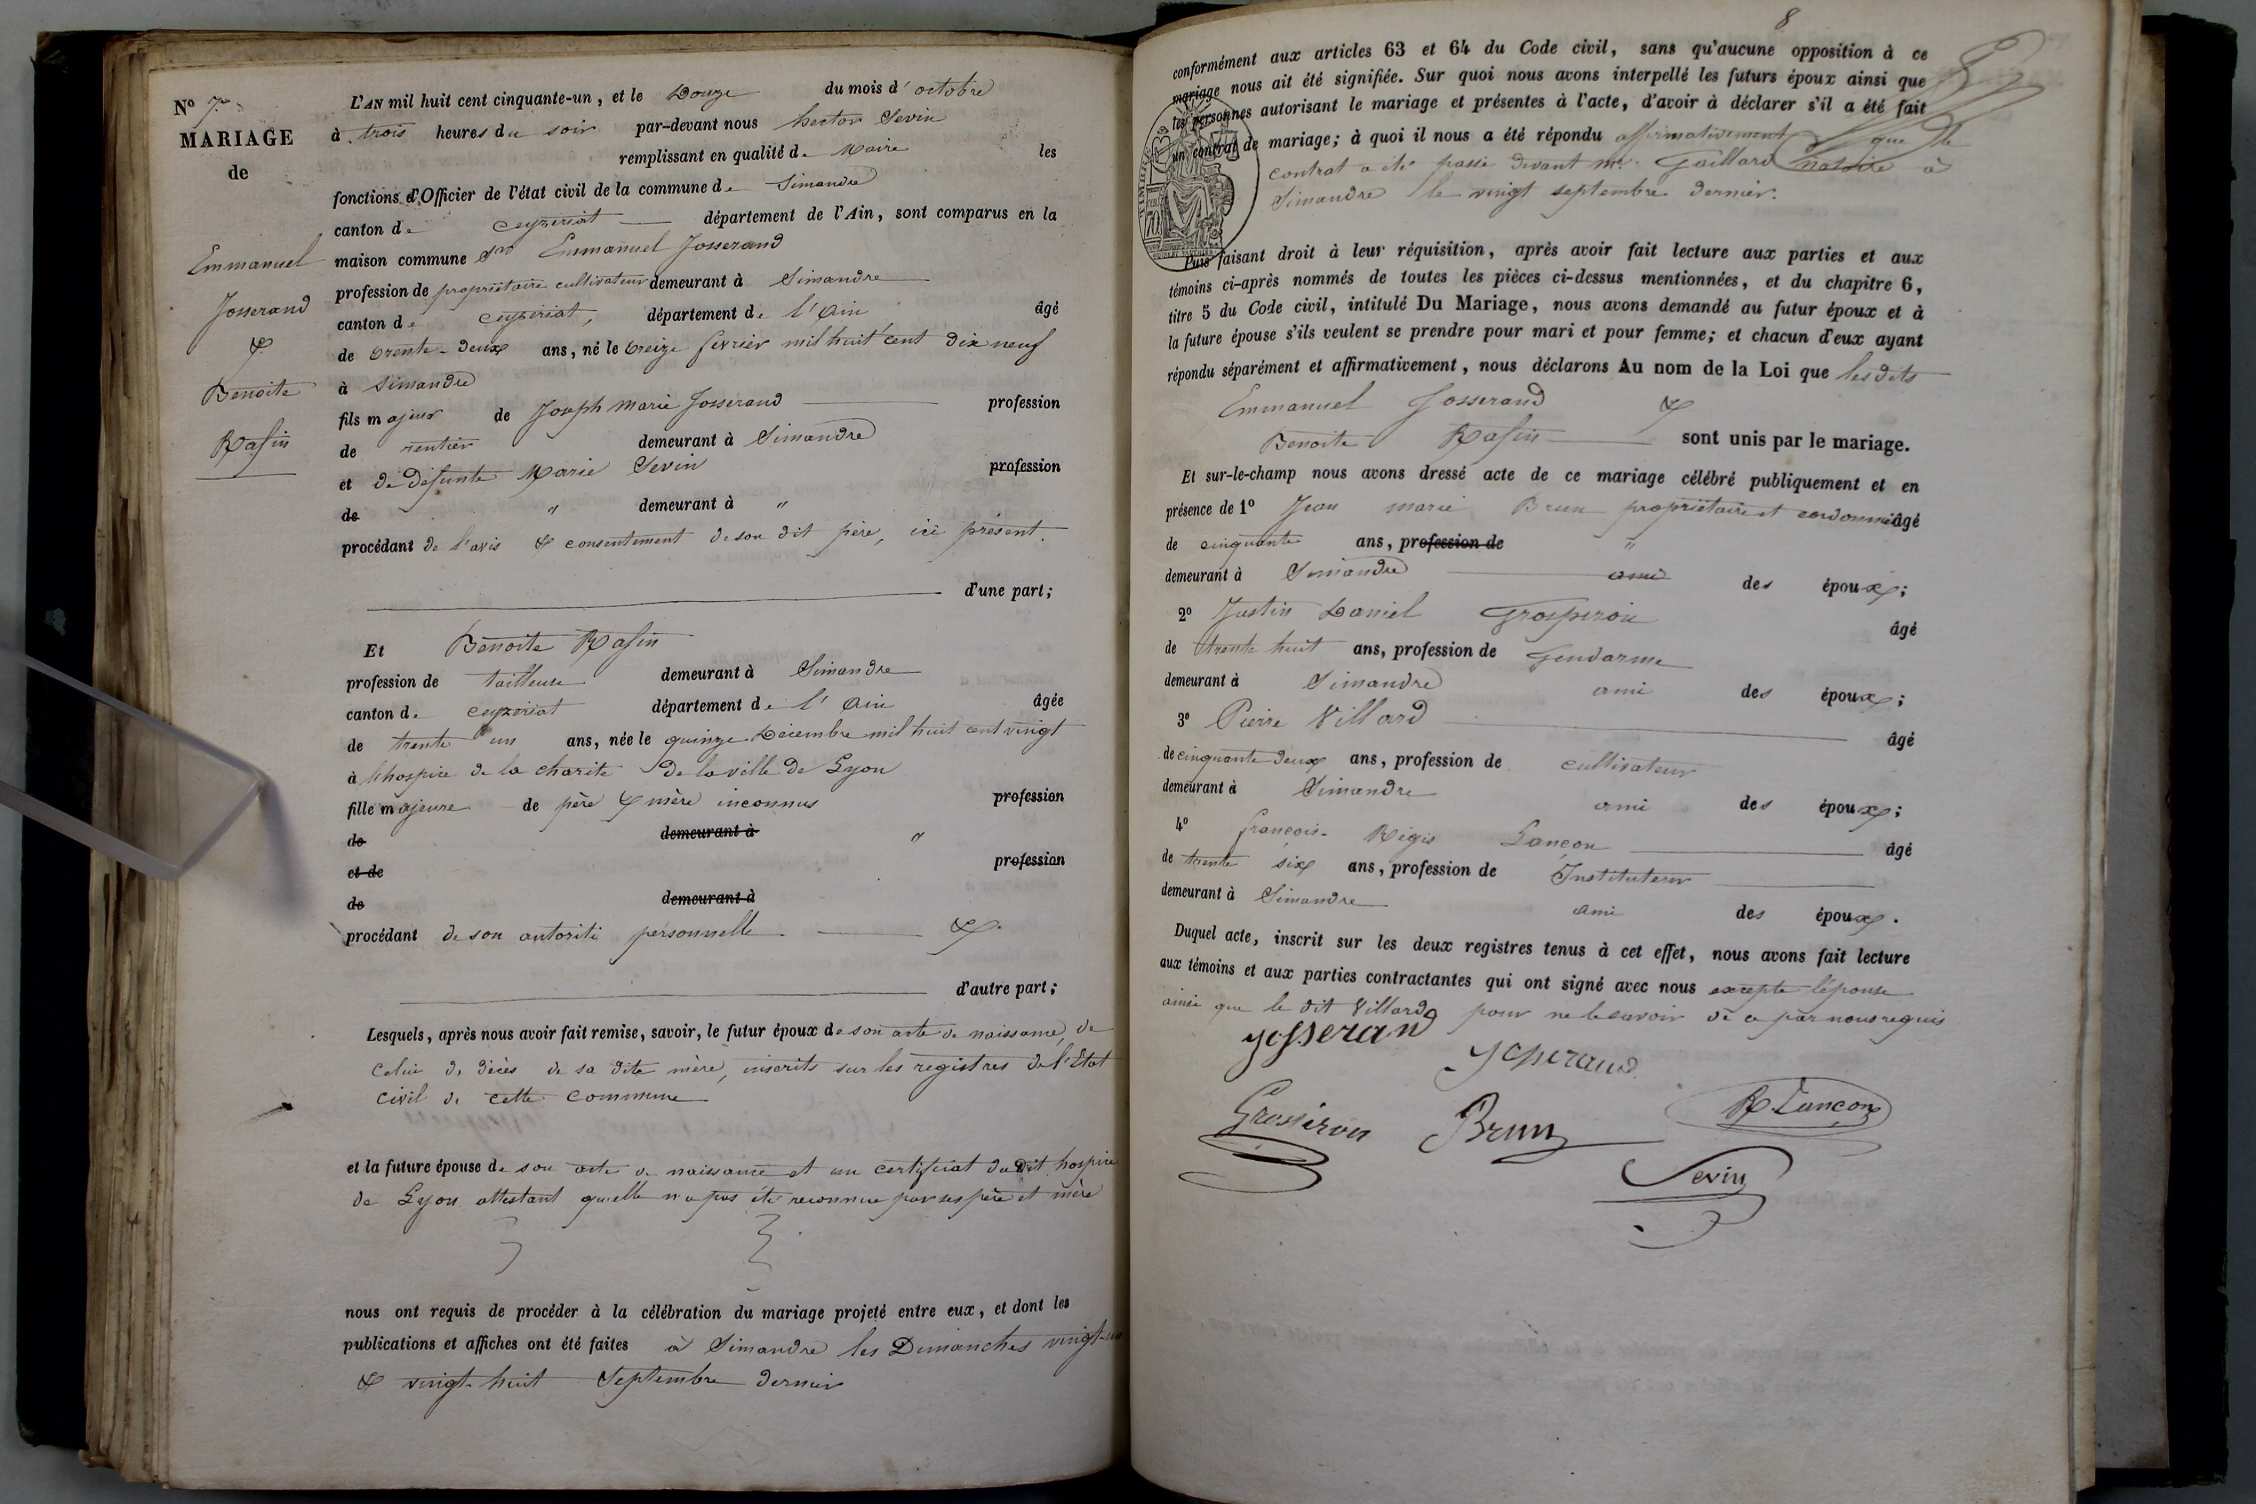 N° 7.
MARIAGE
de
Emmanuel
Josserand
&
Benoite
Rafin
L'AN mil huit cent cinquante-un, et le Douze du mois d'octobre
à trois heures du soir par-devant nous hector Sevin
remplissant en qualité de Maire les
fonctions d'Officier de l'état civil de la commune de Simandre
canton de ceyzeriat département de l'Ain, sont comparus en la
maison commune Sr Emmanuel Josserand
profession de propriétaire cultivateur demeurant à Simandre
canton de ceyzeriat, département de l'ain âgé
de trente-deux ans, né le treize fevrier mil huit cent dix neuf
à Simandre
fils majeur de Joseph Marie Josserand profession
de rentier demeurant à Simandre
et de défunte Marie Sevin profession
de " demeurant à "
procédant de l'avis & consentement de son dit père, ici présent.
d'une part;
Et Benoite Rafin
profession de tailleuse demeurant à Simandre
canton de ceyzeriat département de l'ain âgée
de trente un ans, née le quinze Décembre mil huit cent vingt
à l'hospice de la charité de la ville de Lyon
fille majeure de père & mère inconnus profession
de demeurant à "
et de profession
de demeurant à
procédant de son autorité personnelle &.
d'autre part;
Lesquels, après nous avoir fait remise, savoir, le futur époux de son acte de naissance, de
celui de décès de sa dite mère, inscrits sur les registres de l'Etat
civil de cette commune
et la future épouse de son acte de naissance et un certificat du dit hospice
de Lyon attestant qu'elle n'a pas été reconnue par ses père et mère
nous ont requis de procéder à la célébration du mariage projeté entre eux, et dont les
publications et affiches ont été faites à Simandre les Dimanches vingt-un
& vingt-huit Septembre dernier
8
conformément aux articles 63 et 64 du Code civil, sans qu'aucune opposition à ce
mariage nous ait été signifiée. Sur quoi nous avons interpellé les futurs époux ainsi que
les personnes autorisant le mariage et présentes à l'acte, d'avoir à déclarer s'il a été fait
un contrat de mariage; à quoi il nous a été répondu affirmativement que le
contrat a été passé devant Me. Gaillard notaire à
Simandre le vingt septembre dernier.
Puis faisant droit à leur réquisition, après avoir fait lecture aux parties et aux
témoins ci-après nommés de toutes les pièces ci-dessus mentionnées, et du chapitre 6,
titre 5 du Code civil, intitulé Du Mariage, nous avons demandé au futur époux et à
la future épouse s'ils veulent se prendre pour mari et pour femme; et chacun d'eux ayant
répondu séparément et affirmativement, nous déclarons Au nom de la Loi que lesdits
Emmanuel Josserand &
Benoite Rafin sont unis par le mariage.
Et sur-le-champ nous avons dressé acte de ce mariage célébré publiquement et en
présence de 1° Jean marie Brun propriétaire et cordonnier âgé
de cinquante ans, profession de "
demeurant à Simandre ami des époux;
2° Justin Daniel Grosperoin âgé
de trente huit ans, profession de Gendarme
demeurant à Simandre ami des époux;
3° Pierre Villard âgé
de cinquante deux ans, profession de cultivateur
demeurant à Simandre ami des époux;
4° françois-Régis Lançon âgé
de trente six ans, profession de Instituteur
demeurant à Simandre ami des époux.
Duquel acte, inscrit sur les deux registres tenus à cet effet, nous avons fait lecture
aux témoins et aux parties contractantes qui ont signé avec nous excepte l'épouse
ainsi que le dit Villard pour ne le savoir de ce par nous requis
Josserand
Josserand
Brun
R Lançon
Sevin